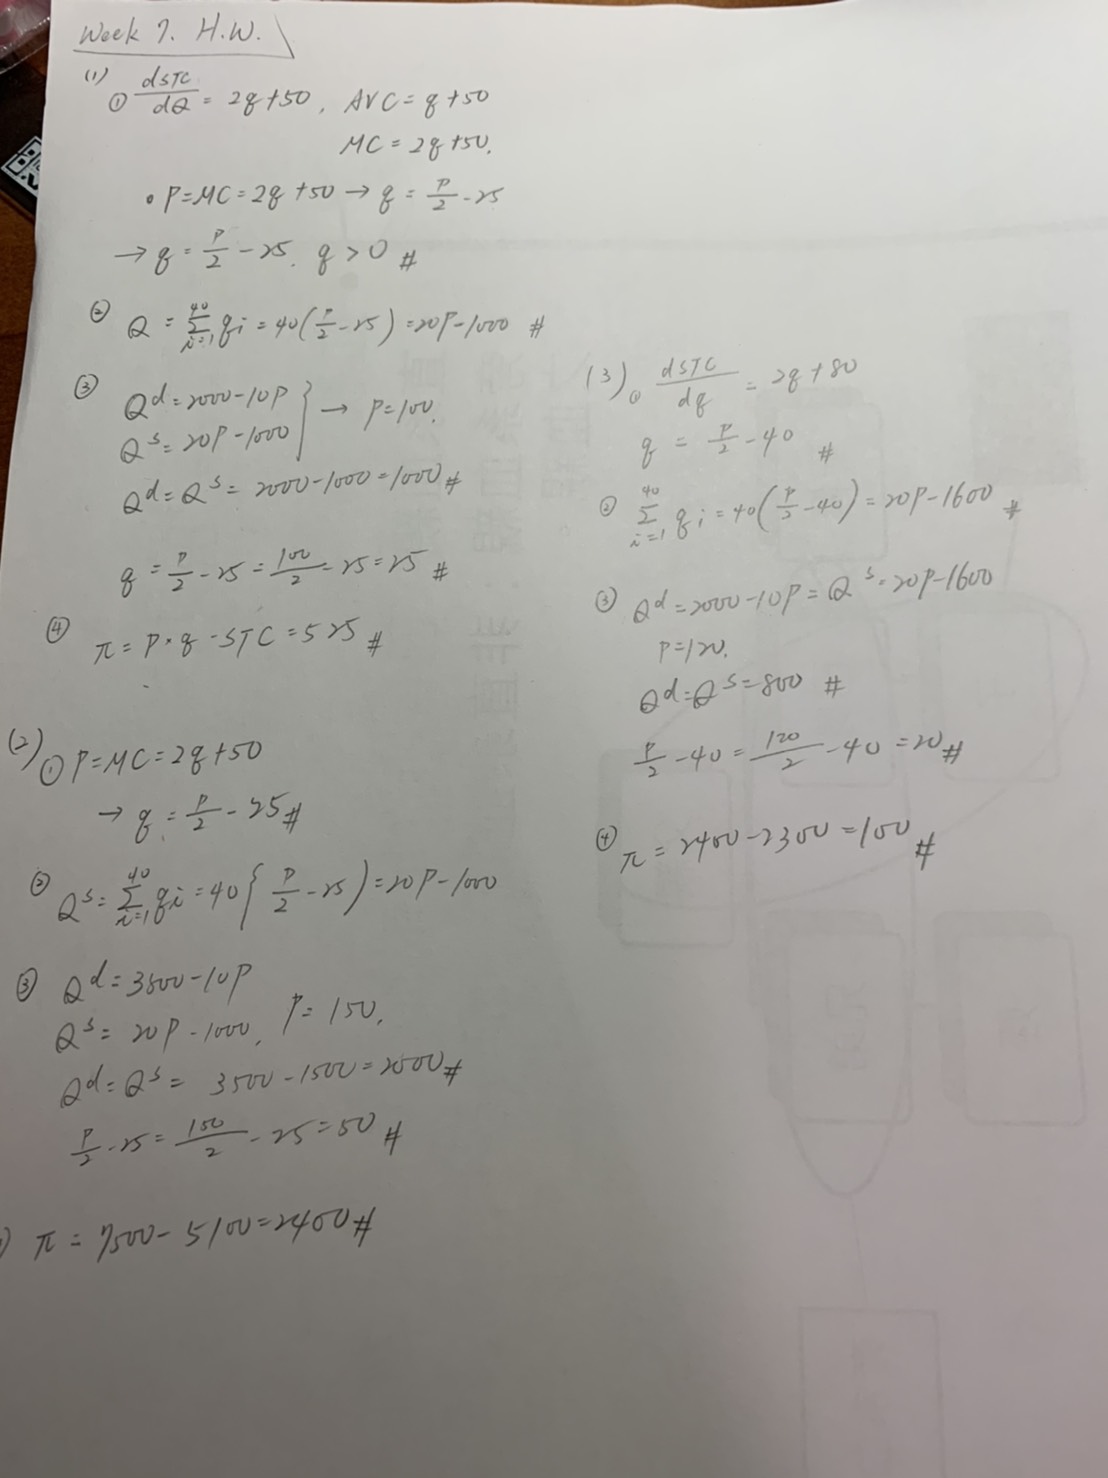 Week 7. H.W.
(1)
① dSTC/dQ = 2q+50, AVC = q+50
MC = 2q+50.
• P=MC=2q+50 → q = P/2 - 25
→ q = P/2 - 25. q > 0 #
② Q = Σ_{i=1}^{40} qi = 40(P/2 - 25) = 20P-1000 #
③ Q^d = 2000-10P
Q^s = 20P-1000 } → P=100.
Q^d = Q^s = 2000-1000 = 1000 #
q = P/2 - 25 = 100/2 - 25 = 25 #
④ π = P·q - STC = 525 #
(2) ① P=MC=2q+50
→ q = P/2 - 25 #
② Q^s = Σ_{i=1}^{40} qi = 40(P/2 - 25) = 20P-1000
③ Q^d = 3500-10P
Q^s = 20P-1000, P=150.
Q^d = Q^s = 3500-1500 = 2000 #
P/2 - 25 = 150/2 - 25 = 50 #
π = 7500 - 5100 = 2400 #
(3) ① dSTC/dq = 2q+80
q = P/2 - 40 #
② Σ_{i=1}^{40} qi = 40(P/2 - 40) = 20P-1600 #
③ Q^d = 2000-10P = Q^s = 20P-1600
P=120.
Q^d = Q^s = 800 #
P/2 - 40 = 120/2 - 40 = 20 #
④ π = 2400 - 2300 = 100 #